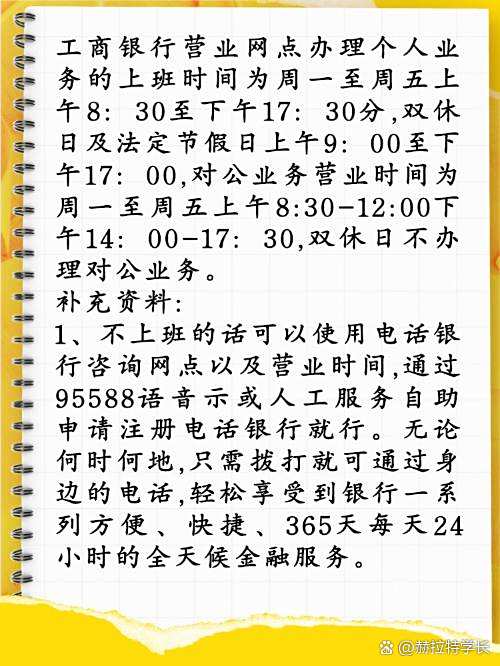 工商银行营业网点办理个人业
务的上班时间为周一至周五上
午8：30至下午17：30分,双休
日及法定节假日上午9：00至下
午17：00,对公业务营业时间为
周一至周五上午8:30-12:00下
午14：00-17：30,双休日不办
理对公业务。
补充资料:
1、不上班的话可以使用电话银
行咨询网点以及营业时间,通过
95588语音示或人工服务自助
申请注册电话银行就行。无论
何时何地,只需拨打就可通过身
边的电话,轻松享受到银行一系
列方便、快捷、365天每天24
小时的全天候金融服务。
赫拉特学长